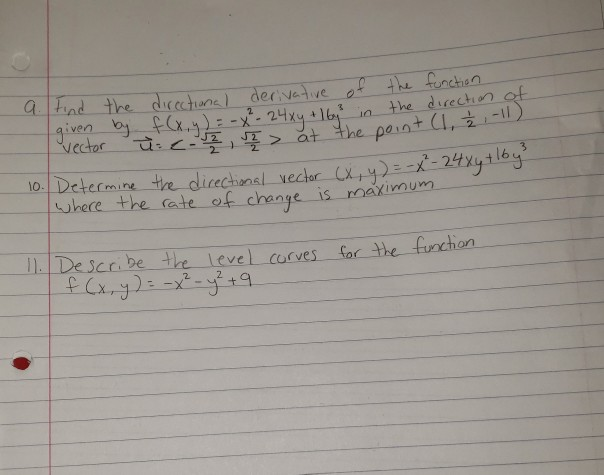 9. Find the directional derivative of the function
given by f(x,y) = -x² - 24xy + 16y³ in the direction of
vector u⃗ = < -√2/2, √2/2 > at the point (1, 1/2, -11)
10. Determine the directional vector (x,y) = -x² - 24xy + 16y³
where the rate of change is maximum
11. Describe the level curves for the function
f(x,y) = -x² - y² + 9